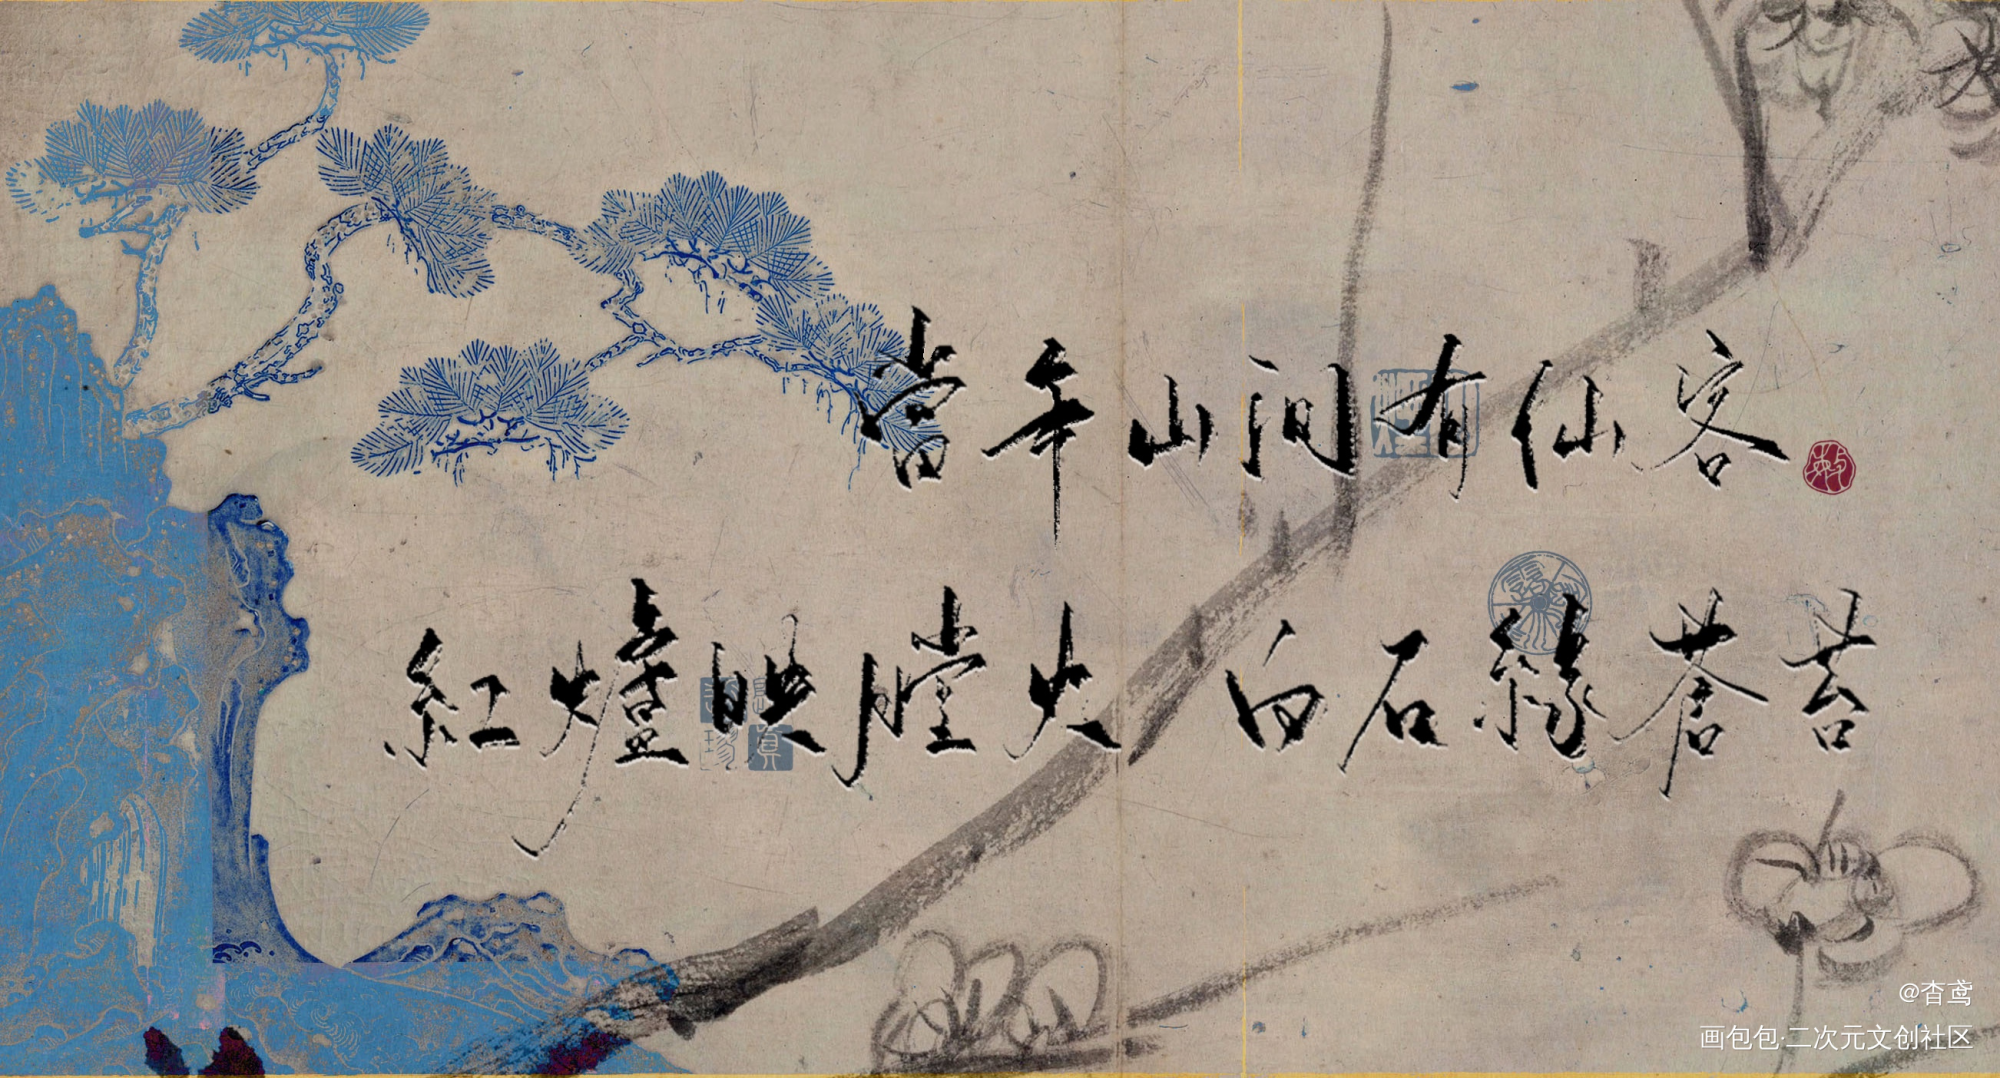 當年山间有仙客
紅爐映膛火 白石緣蒼苔
@杳鸢
画包包·二次元文创社区